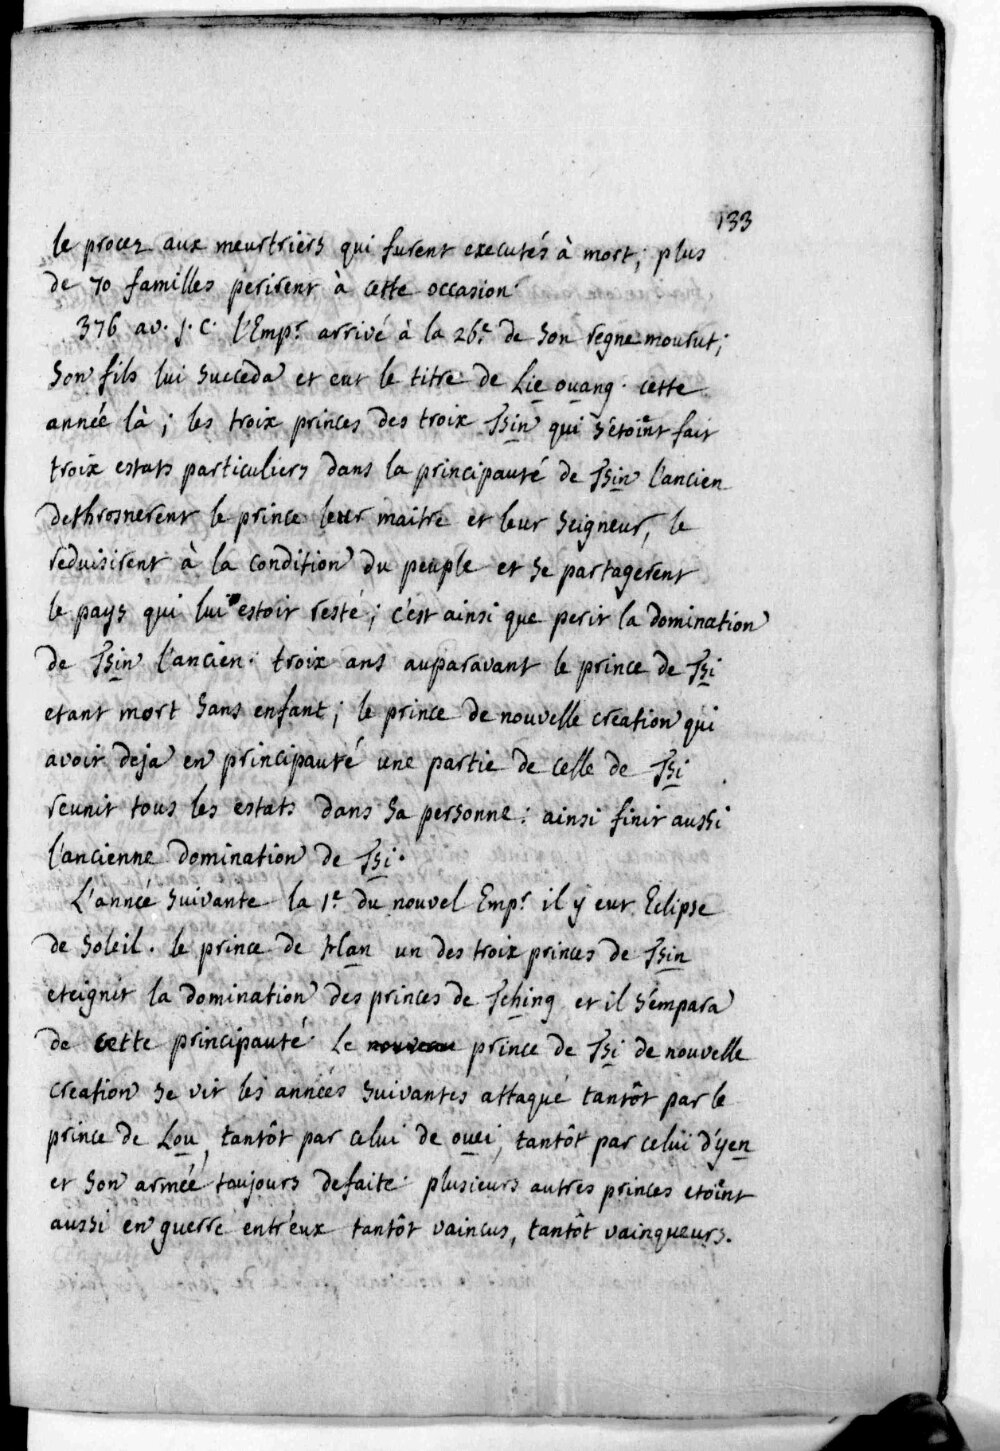 133
le procez aux meurtriers qui furent executés à mort; plus
de 70 familles perirent à cette occasion.
376 av. j. c. l'Empr. arrivé à la 26e. de son regne mourut;
son fils lui succeda et eut le titre de Lie ouang. cette
année là; les troix princes des troix Tsin qui s'etoient fait
troix estats particuliers dans la principauté de Tsin l'ancien
dethrosnerent le prince leur maitre et leur seigneur, le
reduisirent à la condition du peuple et se partagerent
le pays qui lui estoit resté; c'est ainsi que perit la domination
de Tsin l'ancien. troix ans auparavant le prince de Tsi
etant mort sans enfant; le prince de nouvelle creation qui
avoit deja en principauté une partie de celle de Tsi
reunit tous les estats dans sa personne: ainsi finit aussi
l'ancienne domination de Tsi.
L'année suivante la 1e du nouvel Empr. il y eut Eclipse
de soleil. le prince de Han un des troix princes de Tsin
eteignit la domination des princes de Tching et il s'empara
de cette principauté. Le nouveau prince de Tsi de nouvelle
creation se vit les années suivantes attaqué tantôt par le
prince de Lou, tantôt par celui de ouei, tantôt par celui d'yen
et son armée toujours defaite. plusieurs autres princes etoient
aussi en guerre entr'eux tantôt vaincus, tantôt vainqueurs.